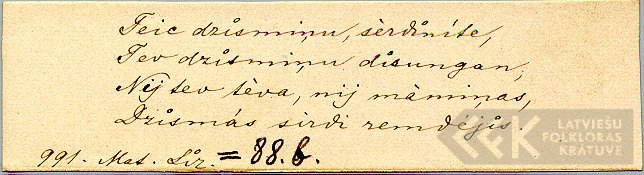 Teic dzismiņu, sèrdìníte,
Tev dzismiņu disungan,
Nij tev tèva, nij màmiņas,
Dzismás sirdi remdèjis.
991. Mat. Liz. = 88.b.
LATVIEŠU
FOLKLORAS
KRĀTUVE